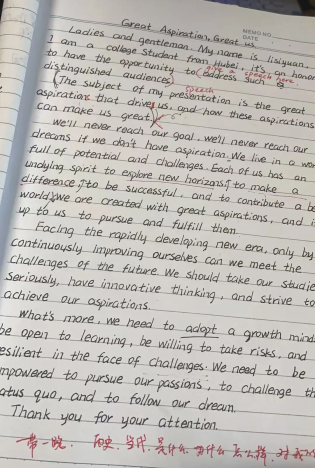 MEMO NO.
DATE
Great Aspiration, Great us.
Ladies and gentleman. My name is lisiyuan.
I am a college student from Hubei, it's an honor
give a speech here.
to have the opportunity to address such
distinguished audiences.
speech
The subject of my presentation is the great
aspirations that drives us, and how these aspirations
can make us great.
We'll never reach our goal. we'll never reach our
dreams if we don't have aspiration. We live in a
full of potential and challenges. Each of us has an
undying spirit to explore new horizons, to make a
difference, to be successful, and to contribute a
world. We are created with great aspirations, and
up to us to pursue and fulfill them.
Facing the rapidly developing new era, only by
continuously improving ourselves can we meet the
challenges of the future. We should take our
seriously, have innovative thinking, and strive to
achieve our aspirations.
What's more, we need to adopt a growth
be open to learning, be willing to take risks, and
esilient in the face of challenges. We need to be
mpowered to pursue our passions, to challenge
atus quo, and to follow our dream.
Thank you for your attention.
历史、当代、是什么 为什么 怎么样